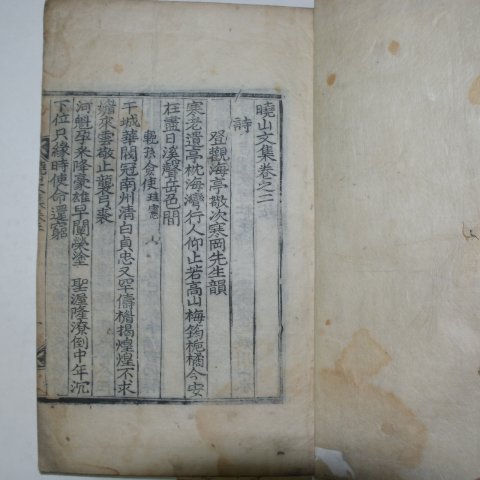 曉山文集卷之二
詩
登觀海亭敬次寒岡先生韻
寒老遺亭枕海灣行人仰止若高山梅筠梔橘今安
在盡日溪聲岳色間
輓孫僉使
干城華閥冠南州清白貞忠又罕儔榰揭煌煌不求
嬗來雲敬止襲弓裘
河魁孕朱降豪雄早闡榮塗 聖渥隆潦倒中年沉
下位只緣時使命還窮